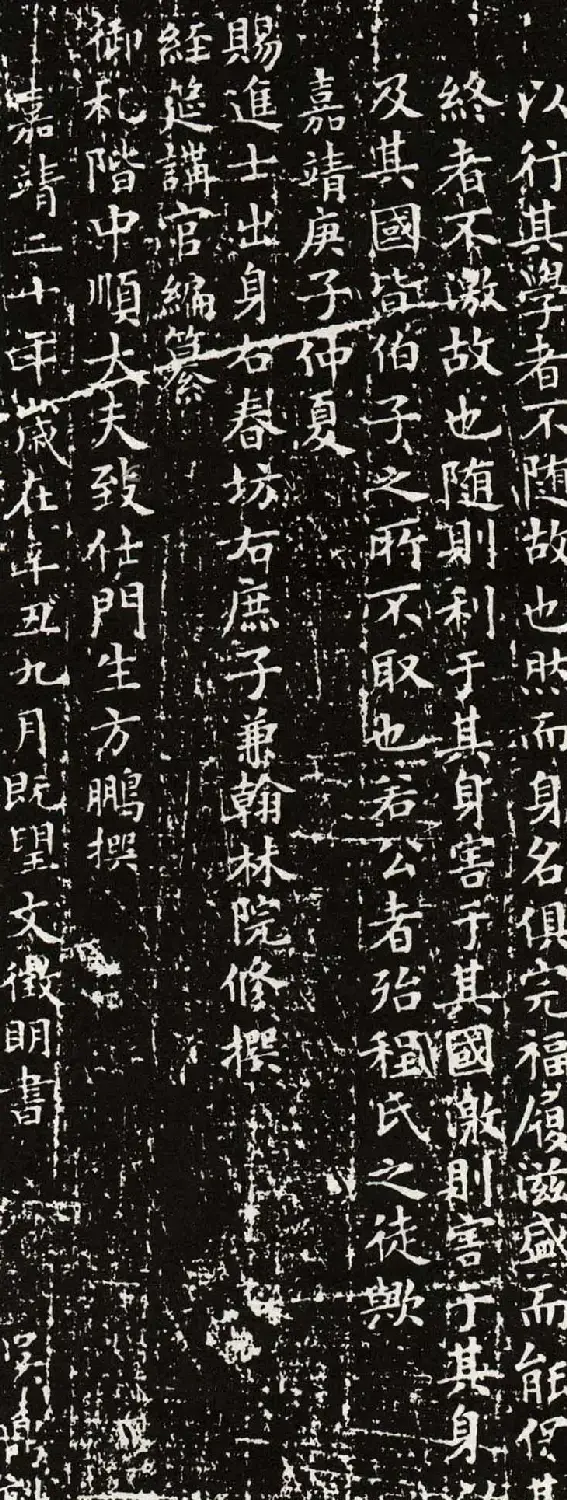 以行其學者不随故也然而身名俱完福履滋盛而能保其
終者不激故也随則利于其身害于其國激則害于其身
及其國皆伯子之所不取也若公者殆程氏之徒歟
嘉靖庚子仲夏
賜進士出身右春坊右庶子兼翰林院修撰
經筵講官編纂
御札階中順大夫致仕門生方鵬撰
嘉靖二十年歲在辛丑九月既望文徵明書 吳